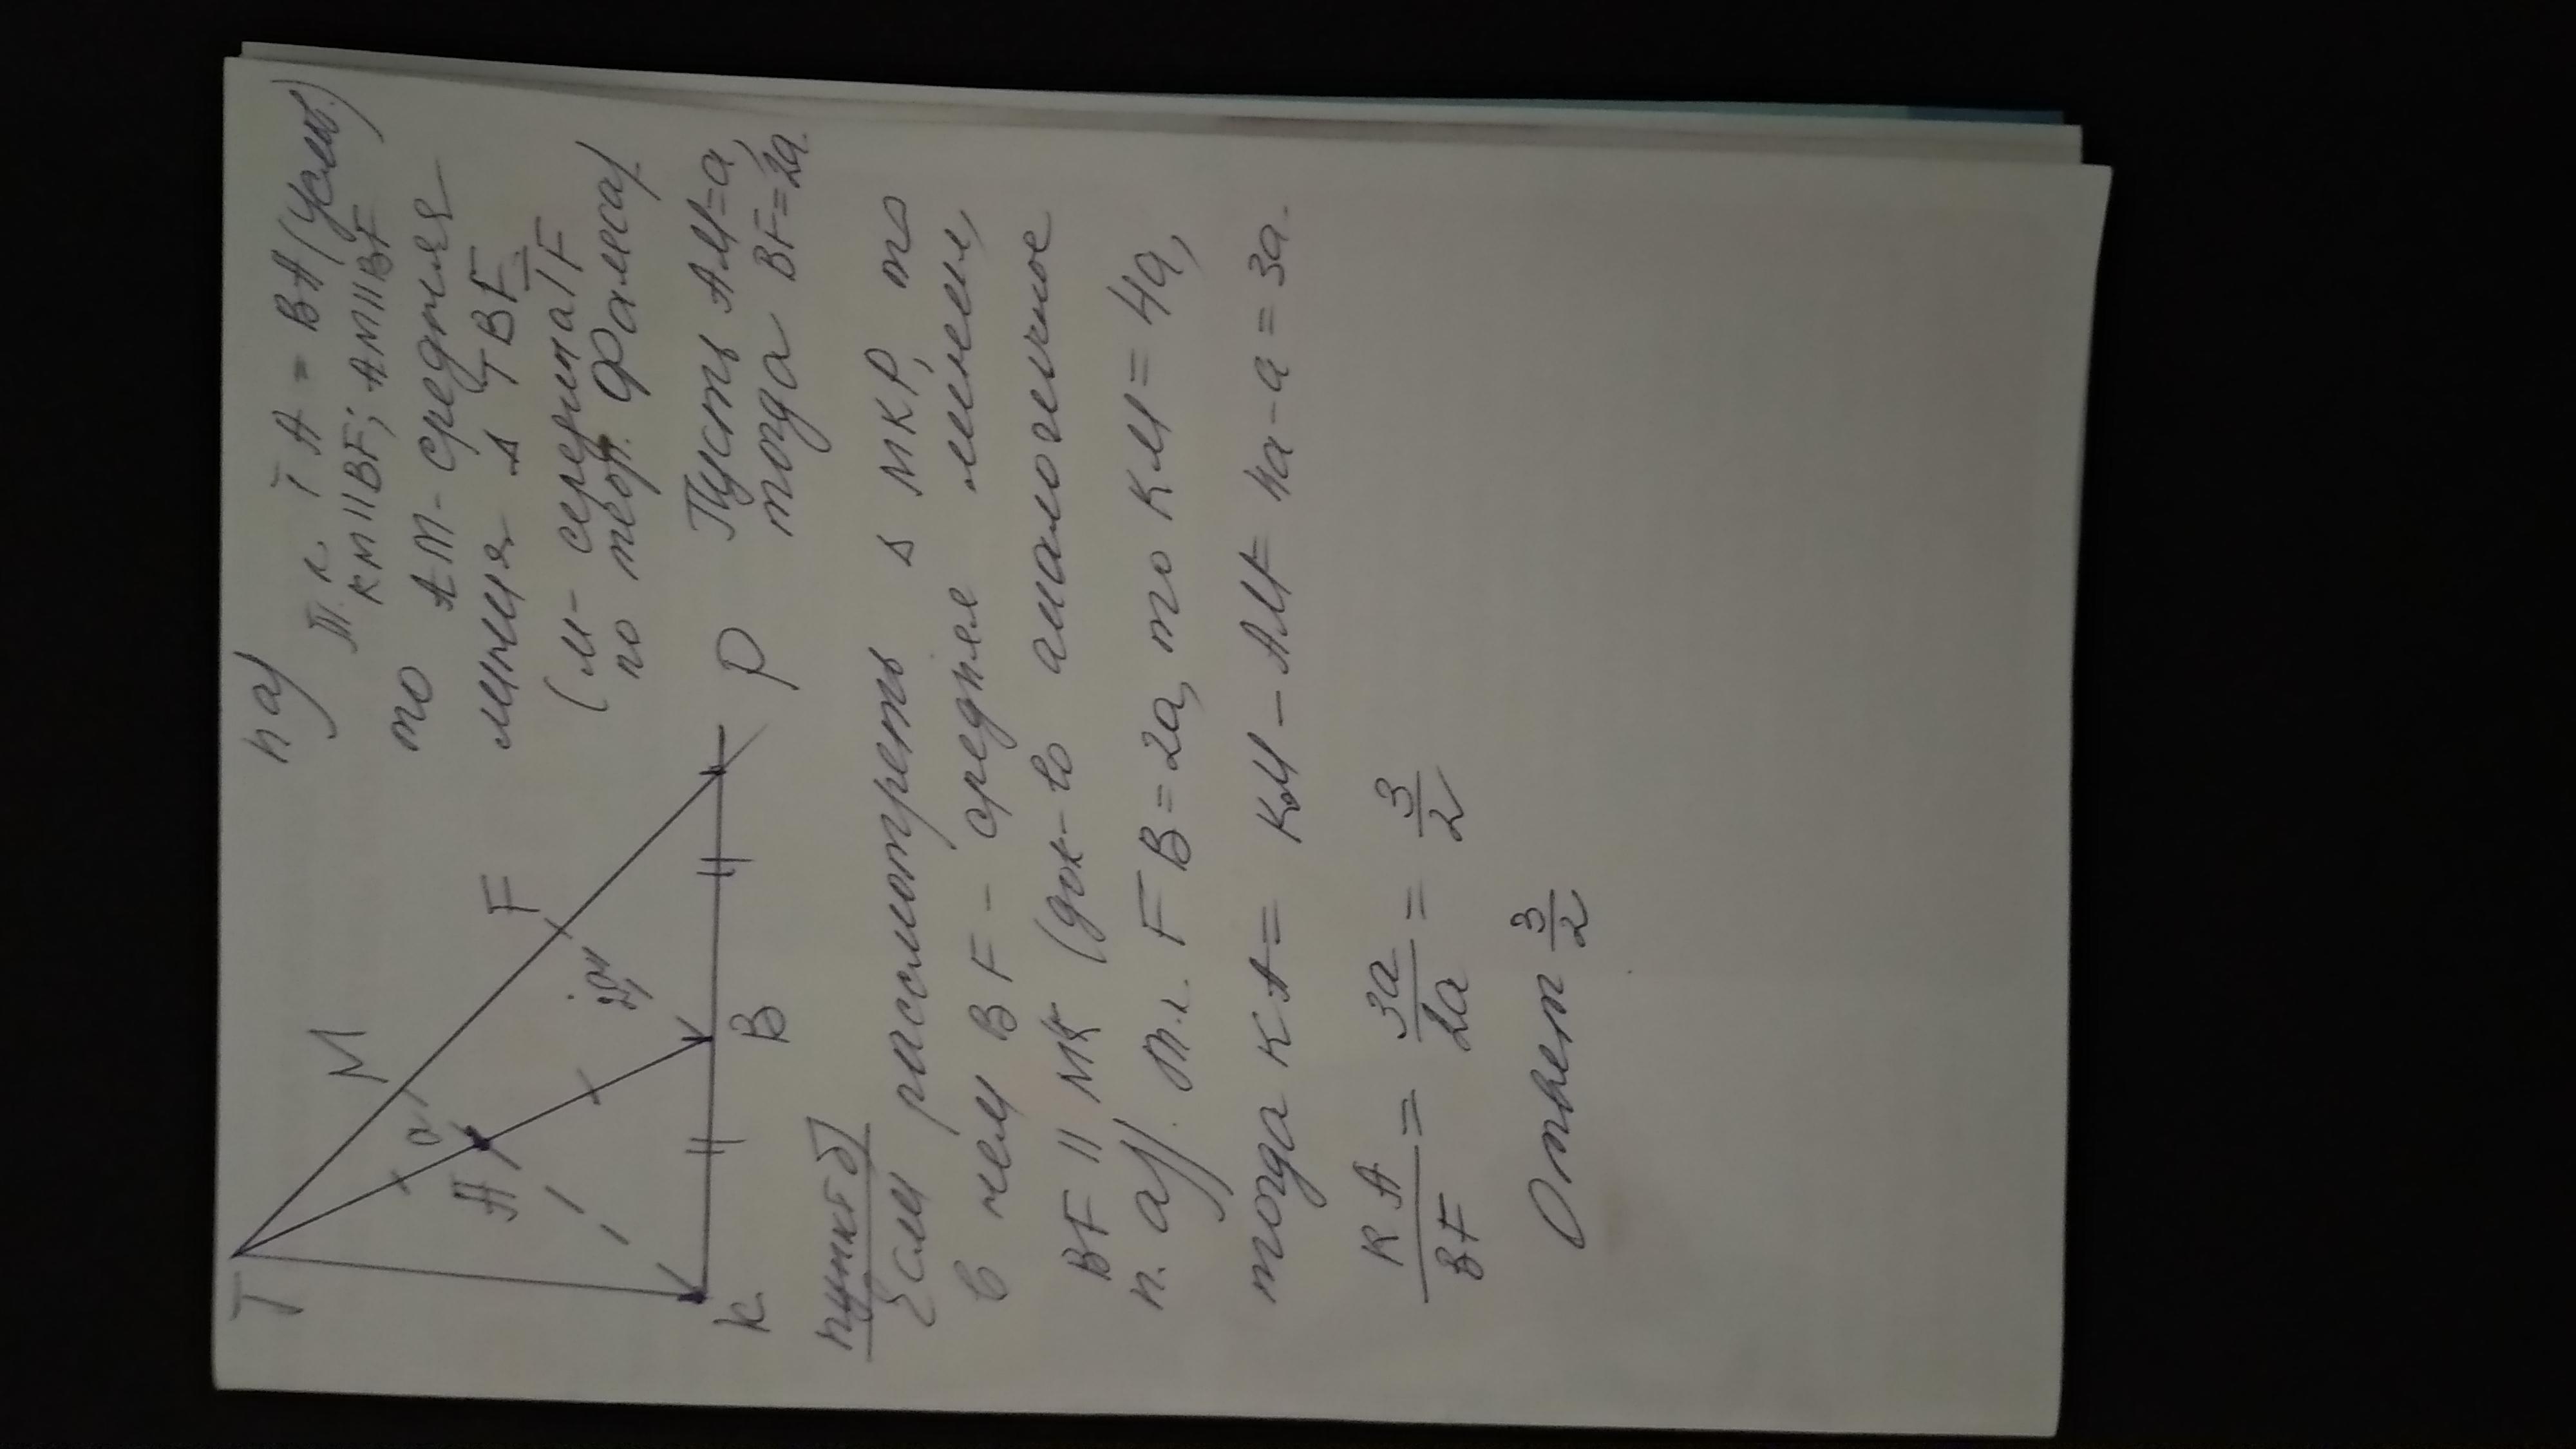 п а)
Т.к. TA = BA (услов.)
KM||BF; AM||BF
то AM - средняя
линия Δ TBF
(M - середина TF
по теор. Фалеса)
Пусть AM = a,
тогда BF = 2a.
T
M
F
a
A
2a
K
B
P
пункт б)
Если рассмотреть Δ MKP, то
в нем BF - средняя линия,
BF || MK (док-во аналогичное
п. а)). т.к. FB = 2a, то KM = 4a,
тогда KA = KM - AM = 4a - a = 3a.
KA/BF = 3a/2a = 3/2
Ответ 3/2